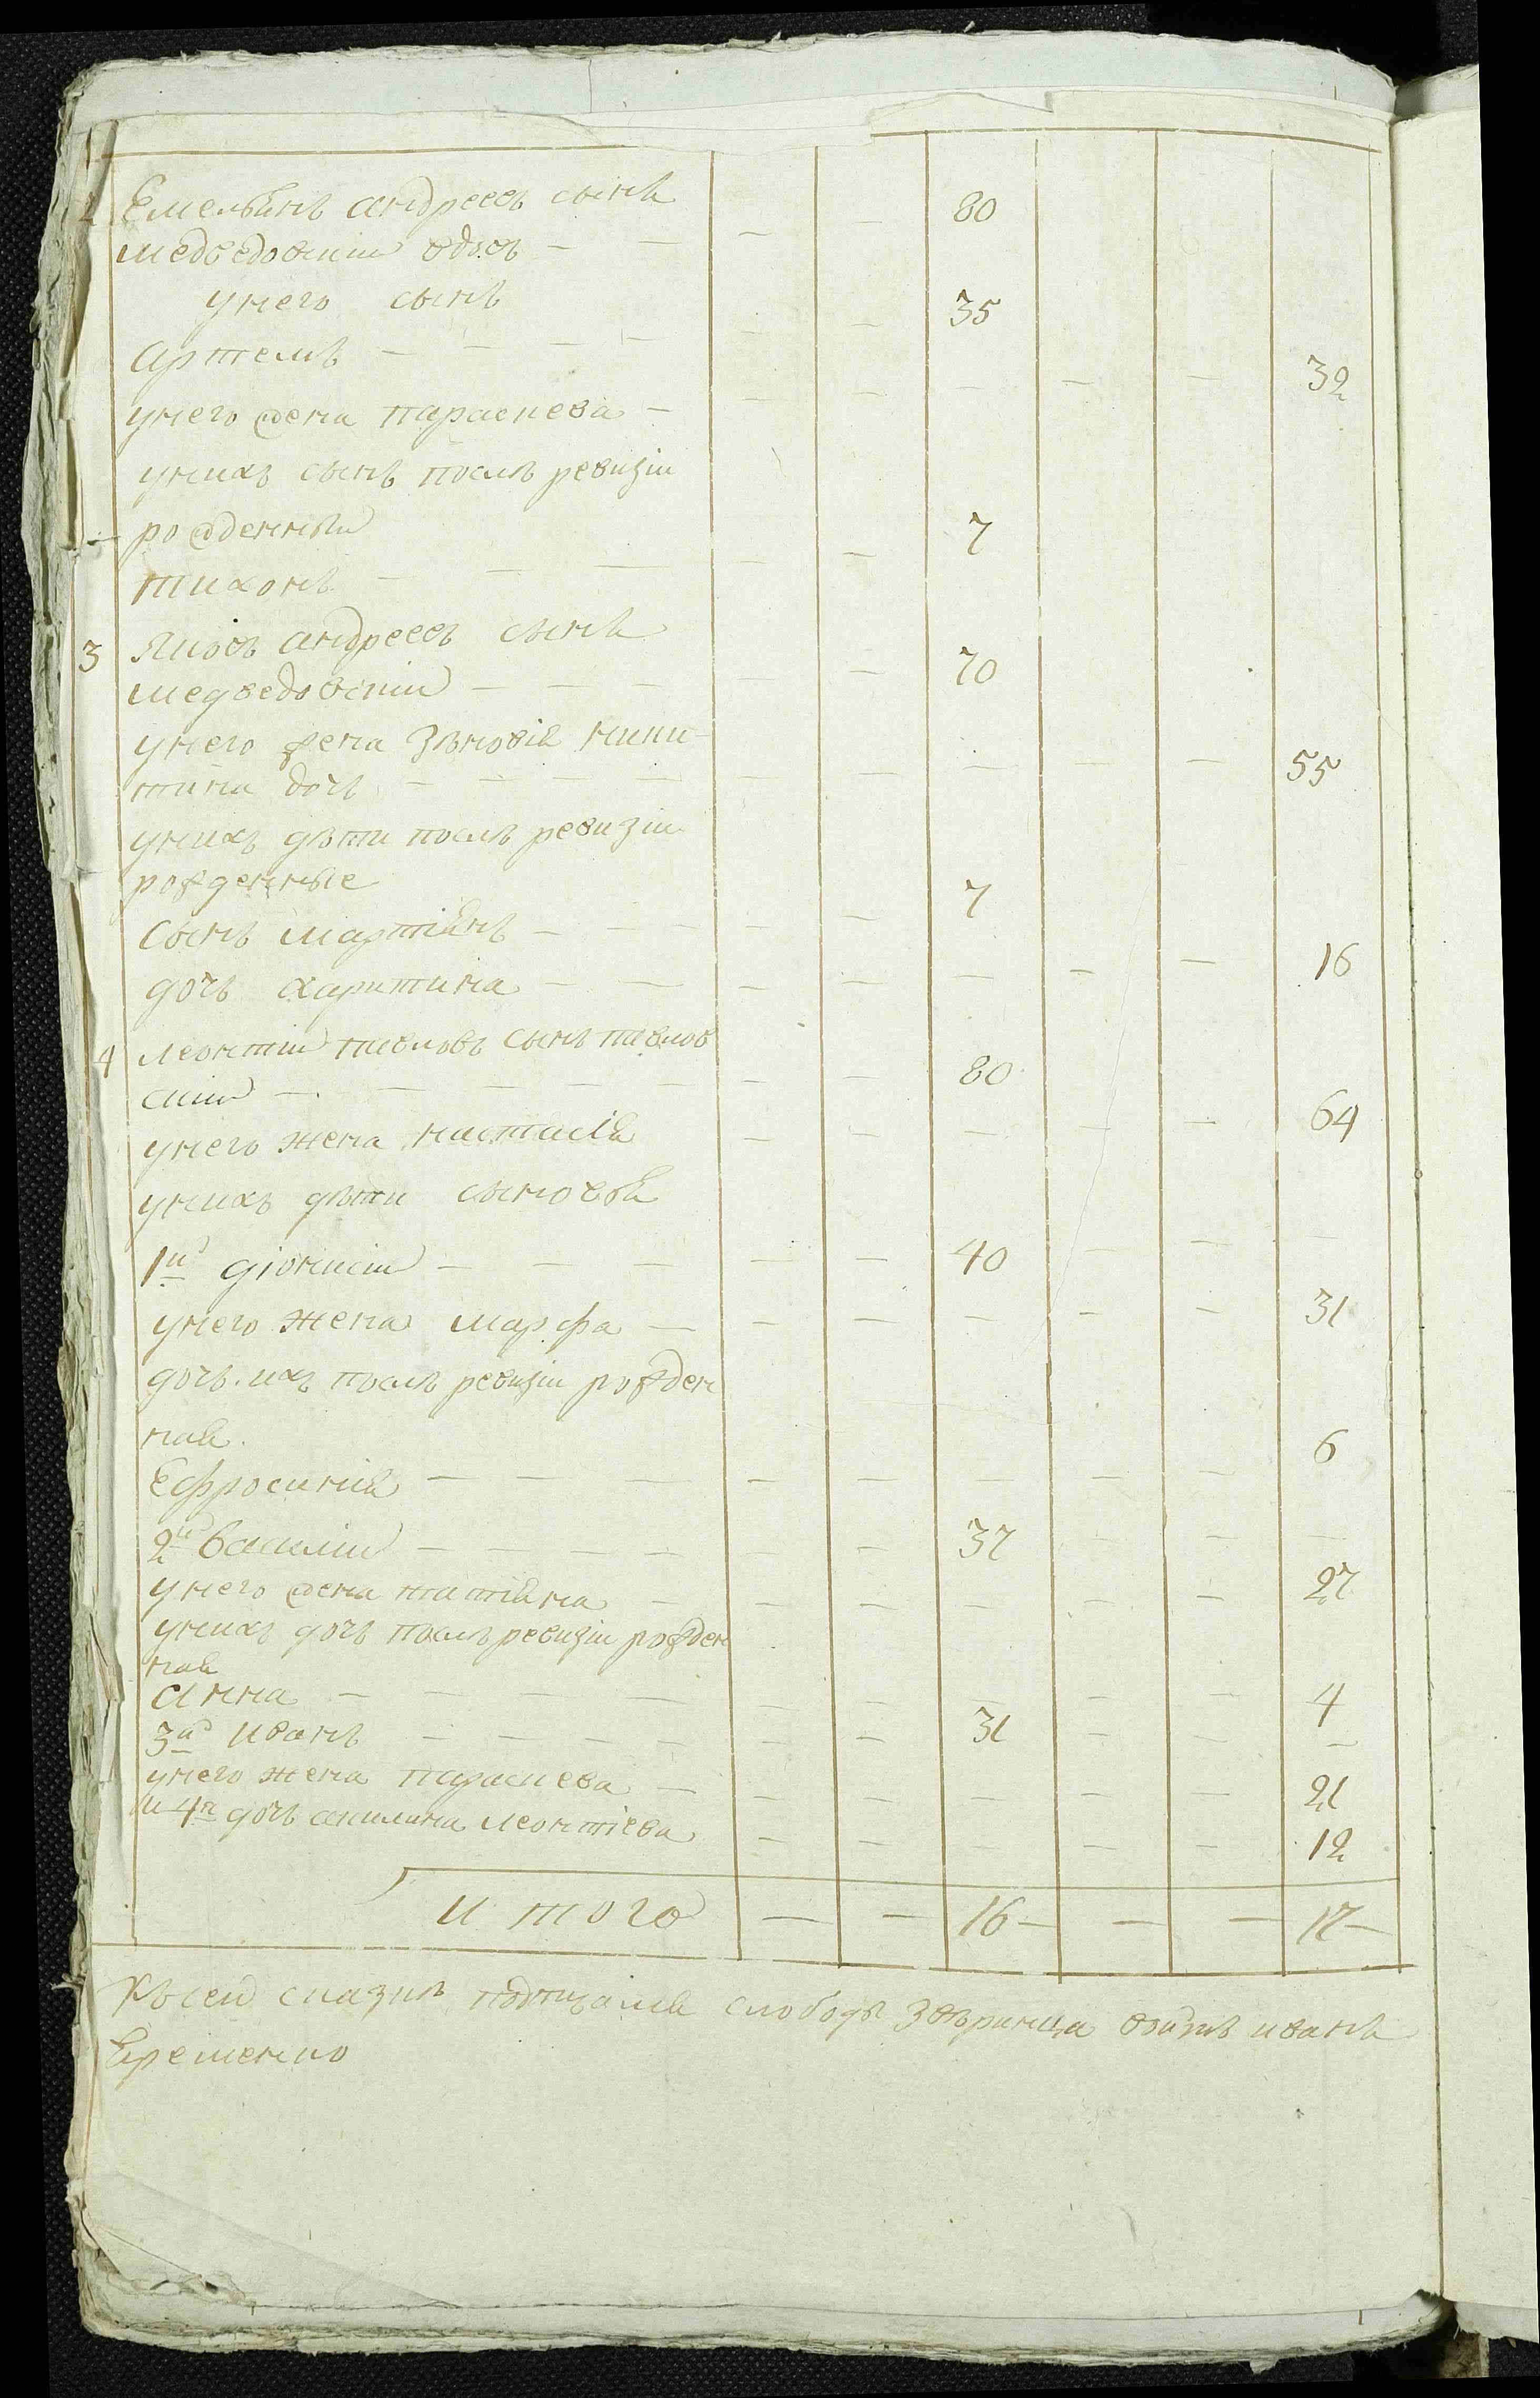 2 Емельянъ андреевъ сынъ 80
медведовскии вдовъ
унего сынъ 35
Артемъ 32
унего жена парасκева
унихъ сынъ послѣ ревизіи
рожденныи 7
тихонъ
3 Яковъ андреевъ сынъ 70
медведовскіи
унего жена Зѣновія ники
тина дочь 55
унихъ дѣти послѣ ревизіи
рожденные
сынъ мартинъ 7
дочь харитина 16
4 леонтіи павловъ сынъ павлов
скіи 80
унего жена настасія 64
унихъ дѣти сыновья
1й діонисіи 40
унего жена марфа 31
дочь ихъ послѣ ревизіи рожден
ная
Ефросинія 6
2й василіи 37
унего жена татіяна 27
унихъ дочь послѣ ревизіи рожден
ная
анна 4
3й иванъ 31
унего жена парасκева 21
и 4я дочь акилина леонтіева 12
и того 16 17
Къ сей сказкѣ подписался слободы звѣринца воитъ иванъ
Яременко